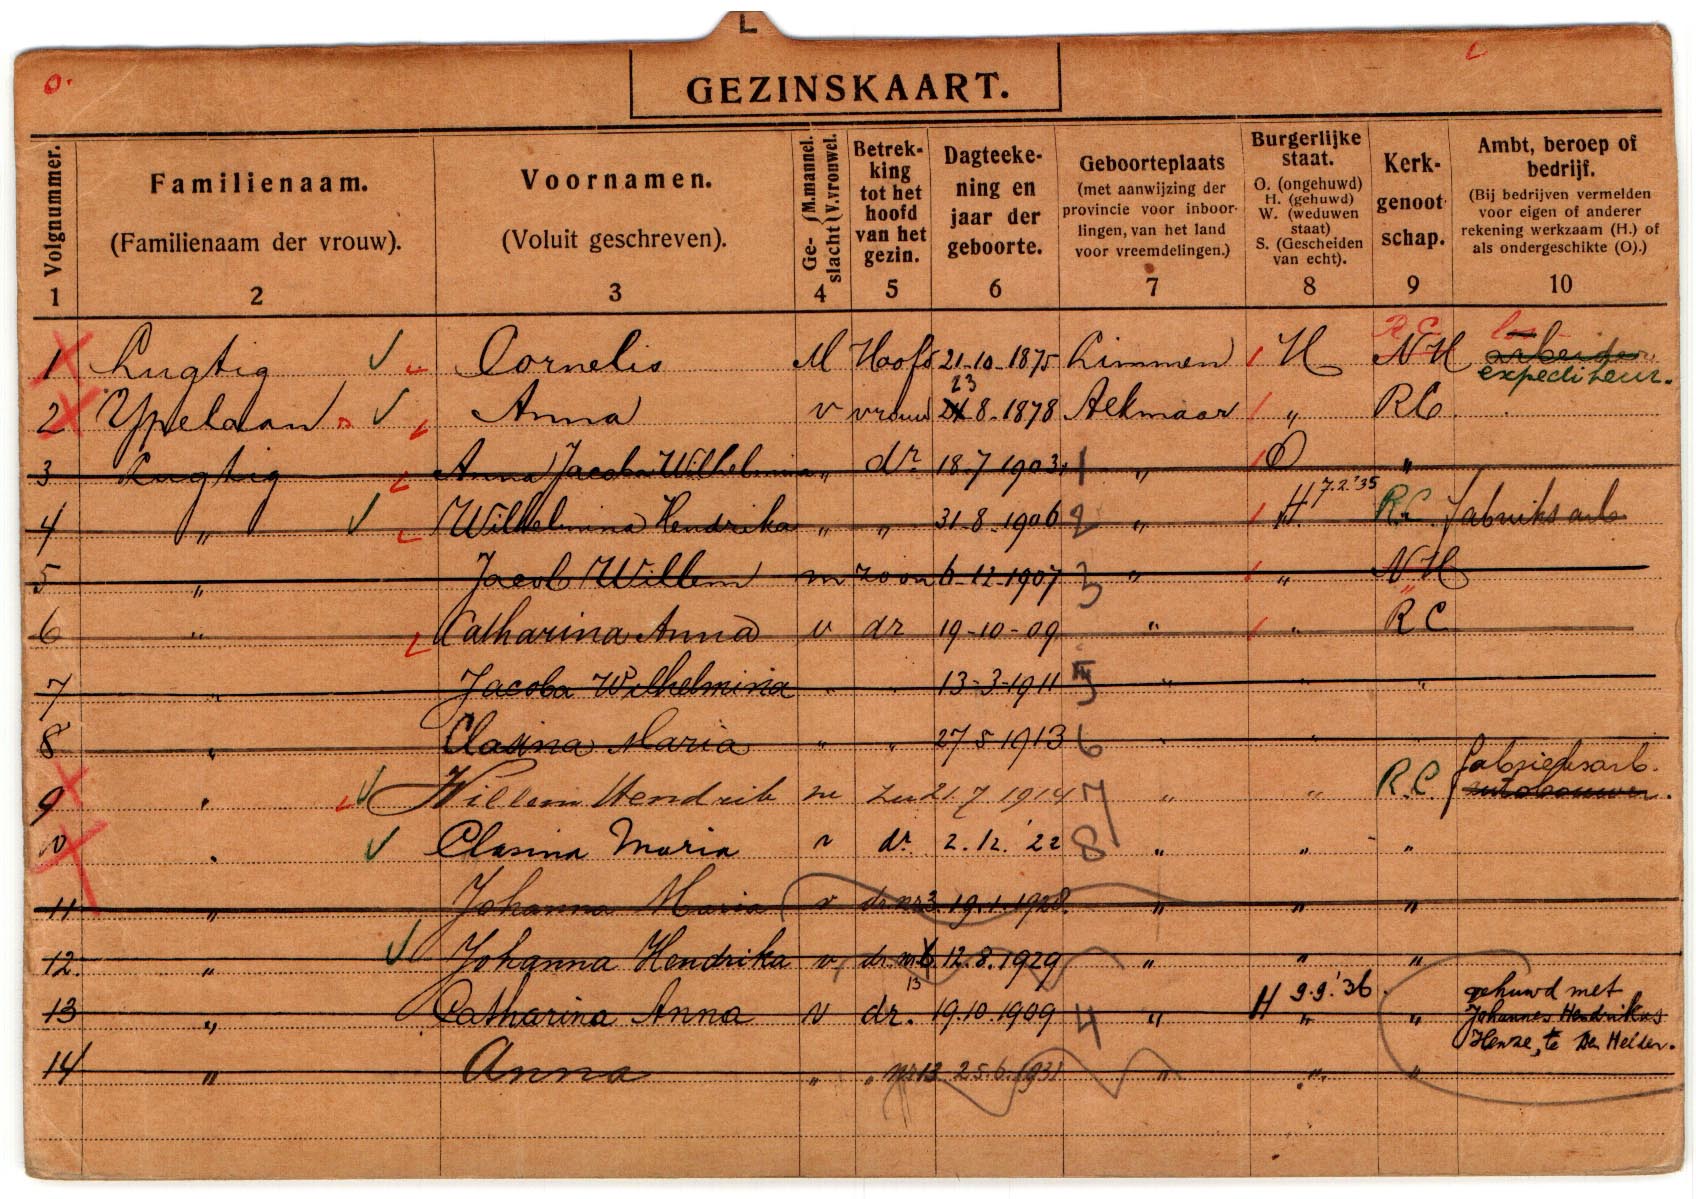 L
GEZINSKAART.
Volgnummer. 1
Familienaam. (Familienaam der vrouw). 2
Voornamen. (Voluit geschreven). 3
Geslacht { M. mannel. V. vrouwel. 4
Betrekking tot het hoofd van het gezin. 5
Dagteekening en jaar der geboorte. 6
Geboorteplaats (met aanwijzing der provincie voor inboorlingen, van het land voor vreemdelingen.) 7
Burgerlijke staat. O. (ongehuwd) H. (gehuwd) W. (weduwen staat) S. (Gescheiden van echt). 8
Kerkgenootschap. 9
Ambt, beroep of bedrijf. (Bij bedrijven vermelden voor eigen of anderer rekening werkzaam (H.) of als ondergeschikte (O).) 10
1 Lugtig Cornelis M Hoofd 21-10-1875 Limmen H R.C. NH los arbeider expediteur.
2 Ypelaan Anna v vrouw 23 8-1878 Alkmaar " RC
3 Lugtig Anna Jacoba Wilhelmina " dr 18-7-1903 1 " O "
4 " Wilhelmina Hendrika " " 31-8-1906 2 " H 7.2.'35 R.C. fabrieksarb
5 " Jacob Willem m zoon 6-12-1907 3 " " NH
6 " Catharina Anna v dr 19-10-09 " " RC
7 " Jacoba Wilhelmina " " 13-3-1911 5 " "
8 " Clasina Maria " " 27 5 1913 6 " "
9 " Willem Hendrik m zn 21.7.1914 7 " " R.C. fabrieksarb. autobouwer.
10 " Clasina Maria v dr. 2.12.'22 8 " " "
11 " Johanna Maria v dr nr 3 19.1.1928. " " "
12. " Johanna Hendrika v dr. nr 6 13 12.8.1929 " " "
13 " Catharina Anna v dr. 19.10.1909 4 " H 9.9.'36 " " gehuwd met Johannes Hendrikus Henze, te Den Helder.
14 " Anna " " nr 13 25.6.1931 " " "